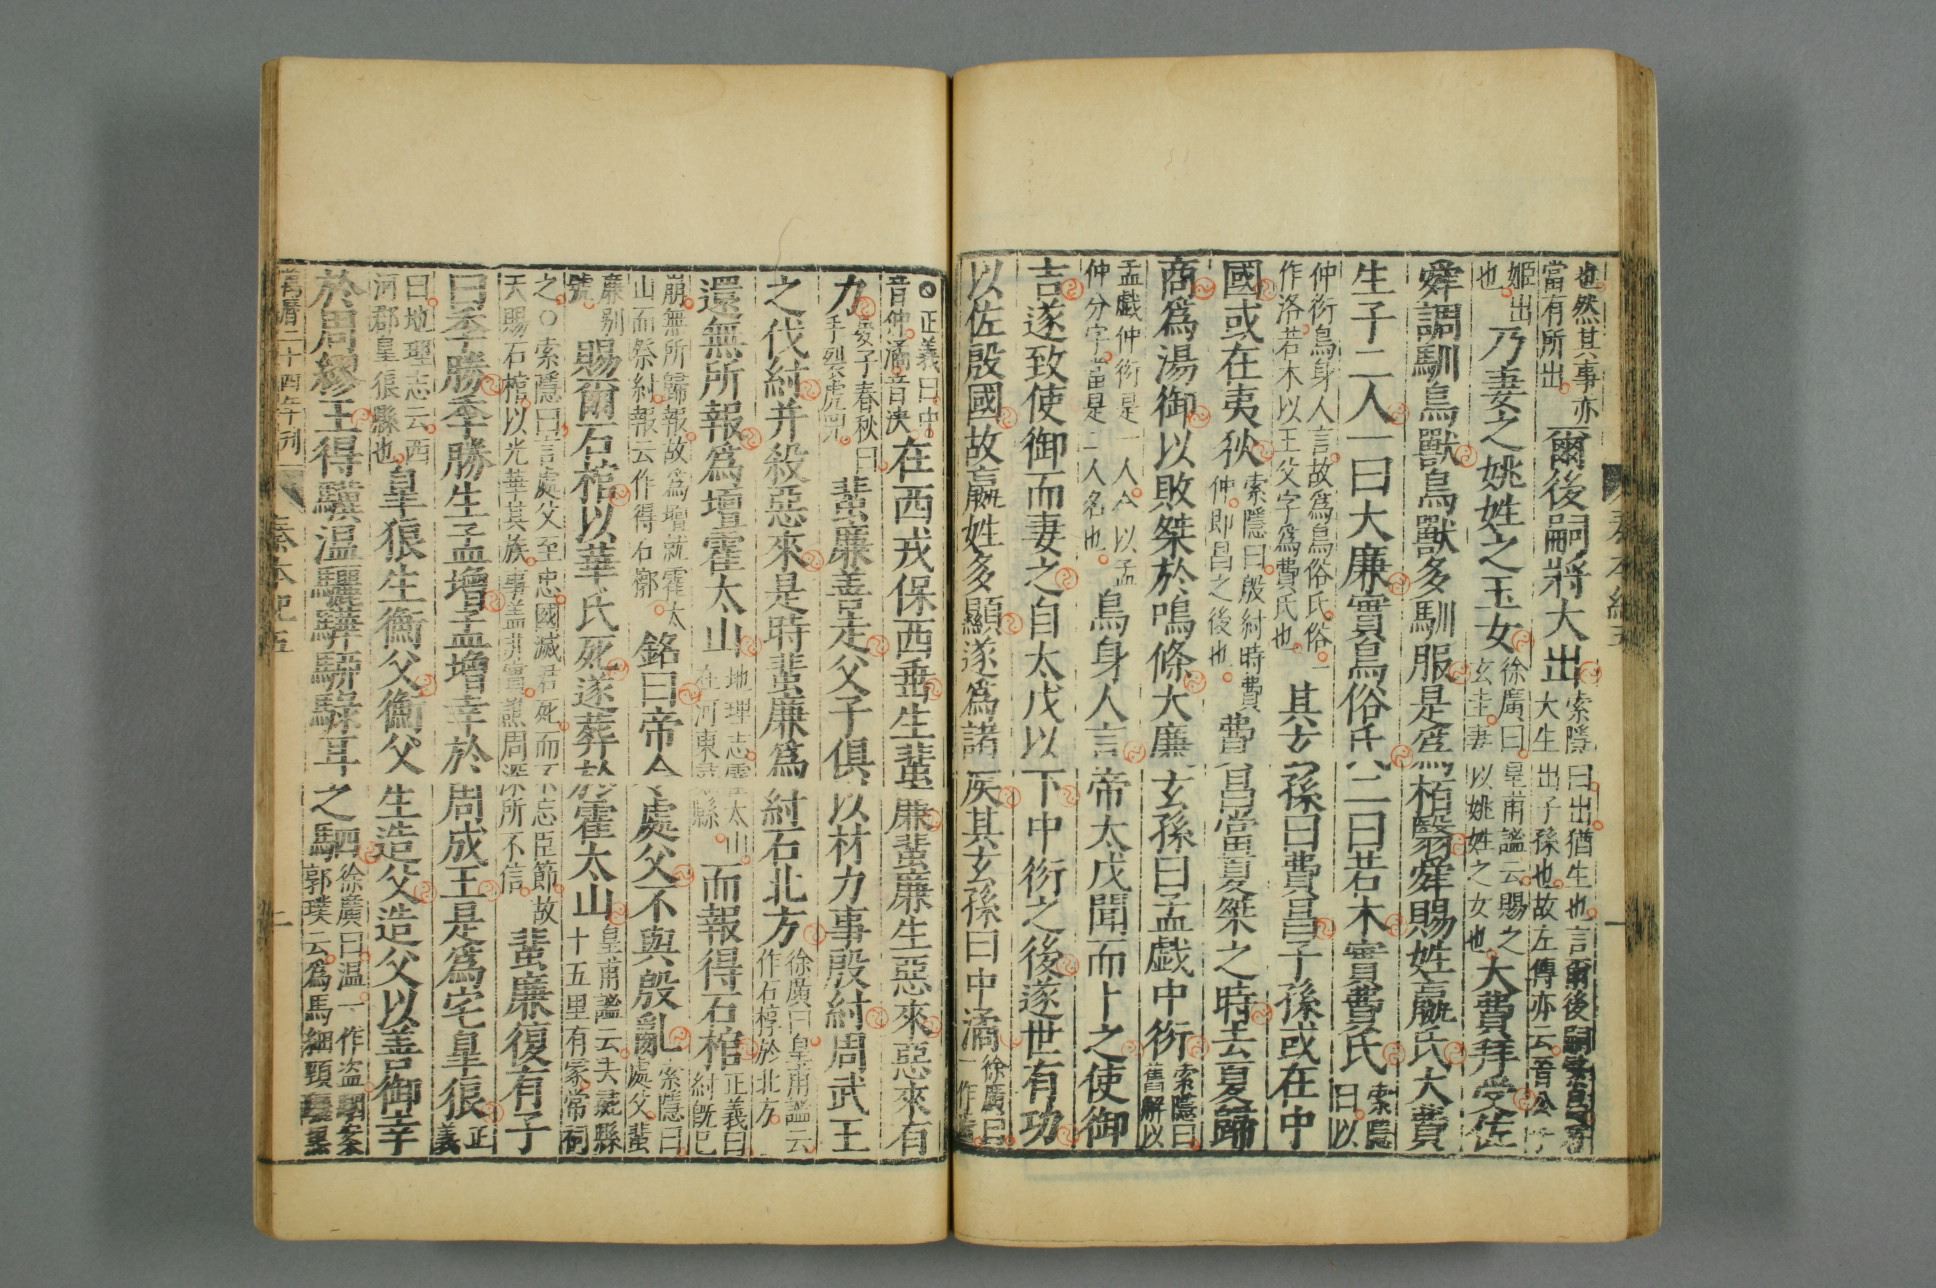 秦本紀五 一
也然其事亦
當有所出
爾後嗣將大出
索隱曰出猶生也言爾後嗣繁昌
大生出子孫也故左傳亦云晉公子
姬出
也
乃妻之姚姓之玉女
徐廣曰皇甫謐云賜之
玄圭妻以姚姓之女也
大費拜受佐
舜調馴鳥獸鳥獸多馴服是爲栢翳舜賜姓嬴氏大費
生子二人一曰大廉實鳥俗氏二曰若木實費氏
索隱
曰以
仲衍鳥身人言故爲鳥俗氏俗一
作洛若木以王父字爲費氏也
其玄孫曰費昌子孫或在中
國或在夷狄
索隱曰殷紂時費
仲即昌之後也
費昌當夏桀之時去夏歸
商爲湯御以敗桀於鳴條大廉玄孫曰孟戲中衍
索隱曰
舊解以
孟戲仲衍是一人今以孟
仲分字當是二人名也
鳥身人言帝太戊聞而卜之使御
吉遂致使御而妻之自太戊以下中衍之後遂世有功
以佐殷國故嬴姓多顯遂爲諸侯其玄孫曰中潏
徐廣曰
一作
○正義曰中
音仲潏音決
在西戎保西垂生蜚廉蜚廉生惡來惡來有
力
晏子春秋曰
手裂虎兕
蜚廉善走父子俱以材力事殷紂周武王
之伐紂并殺惡來是時蜚廉爲紂石北方
徐廣曰皇甫謐云
作石椁於北方
還無所報爲壇霍太山
地理志霍太山
在河東彘縣
而報得石棺
正義曰
紂既已
崩無所歸報故爲壇就霍太
山而祭紂報云作得石槨
銘曰帝令處父不與殷亂
索隱曰
處父蜚
廉别
號
賜爾石棺以華氏死遂葬於霍太山
皇甫謐云去彘縣
十五里有冢常祠
之○索隱曰言處父至忠國滅君死而不忘臣節故
天賜石棺以光華其族事蓋非實譙周深所不信
蜚廉復有子
曰季勝季勝生孟增孟增幸於周成王是爲宅皋狼
正
義
曰地理志云西
河郡皋狼縣也
皋狼生衡父衡父生造父造父以善御幸
於周繆王得驥溫驪驊騮騄耳之駟
徐廣曰温一作盗駰案
郭璞云爲馬細頸驪黑
萬曆二十四年刊 秦本紀五 二